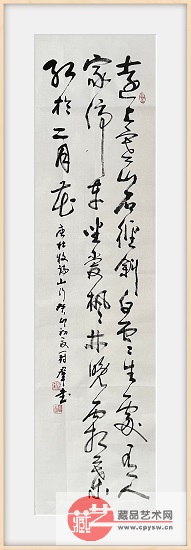 遠上寒山石徑斜白雲生處有人
家停車坐愛楓林晚霜葉
紅於二月花
唐杜牧詩山行癸卯初夏
藏品艺术网
www.cpysw.cn